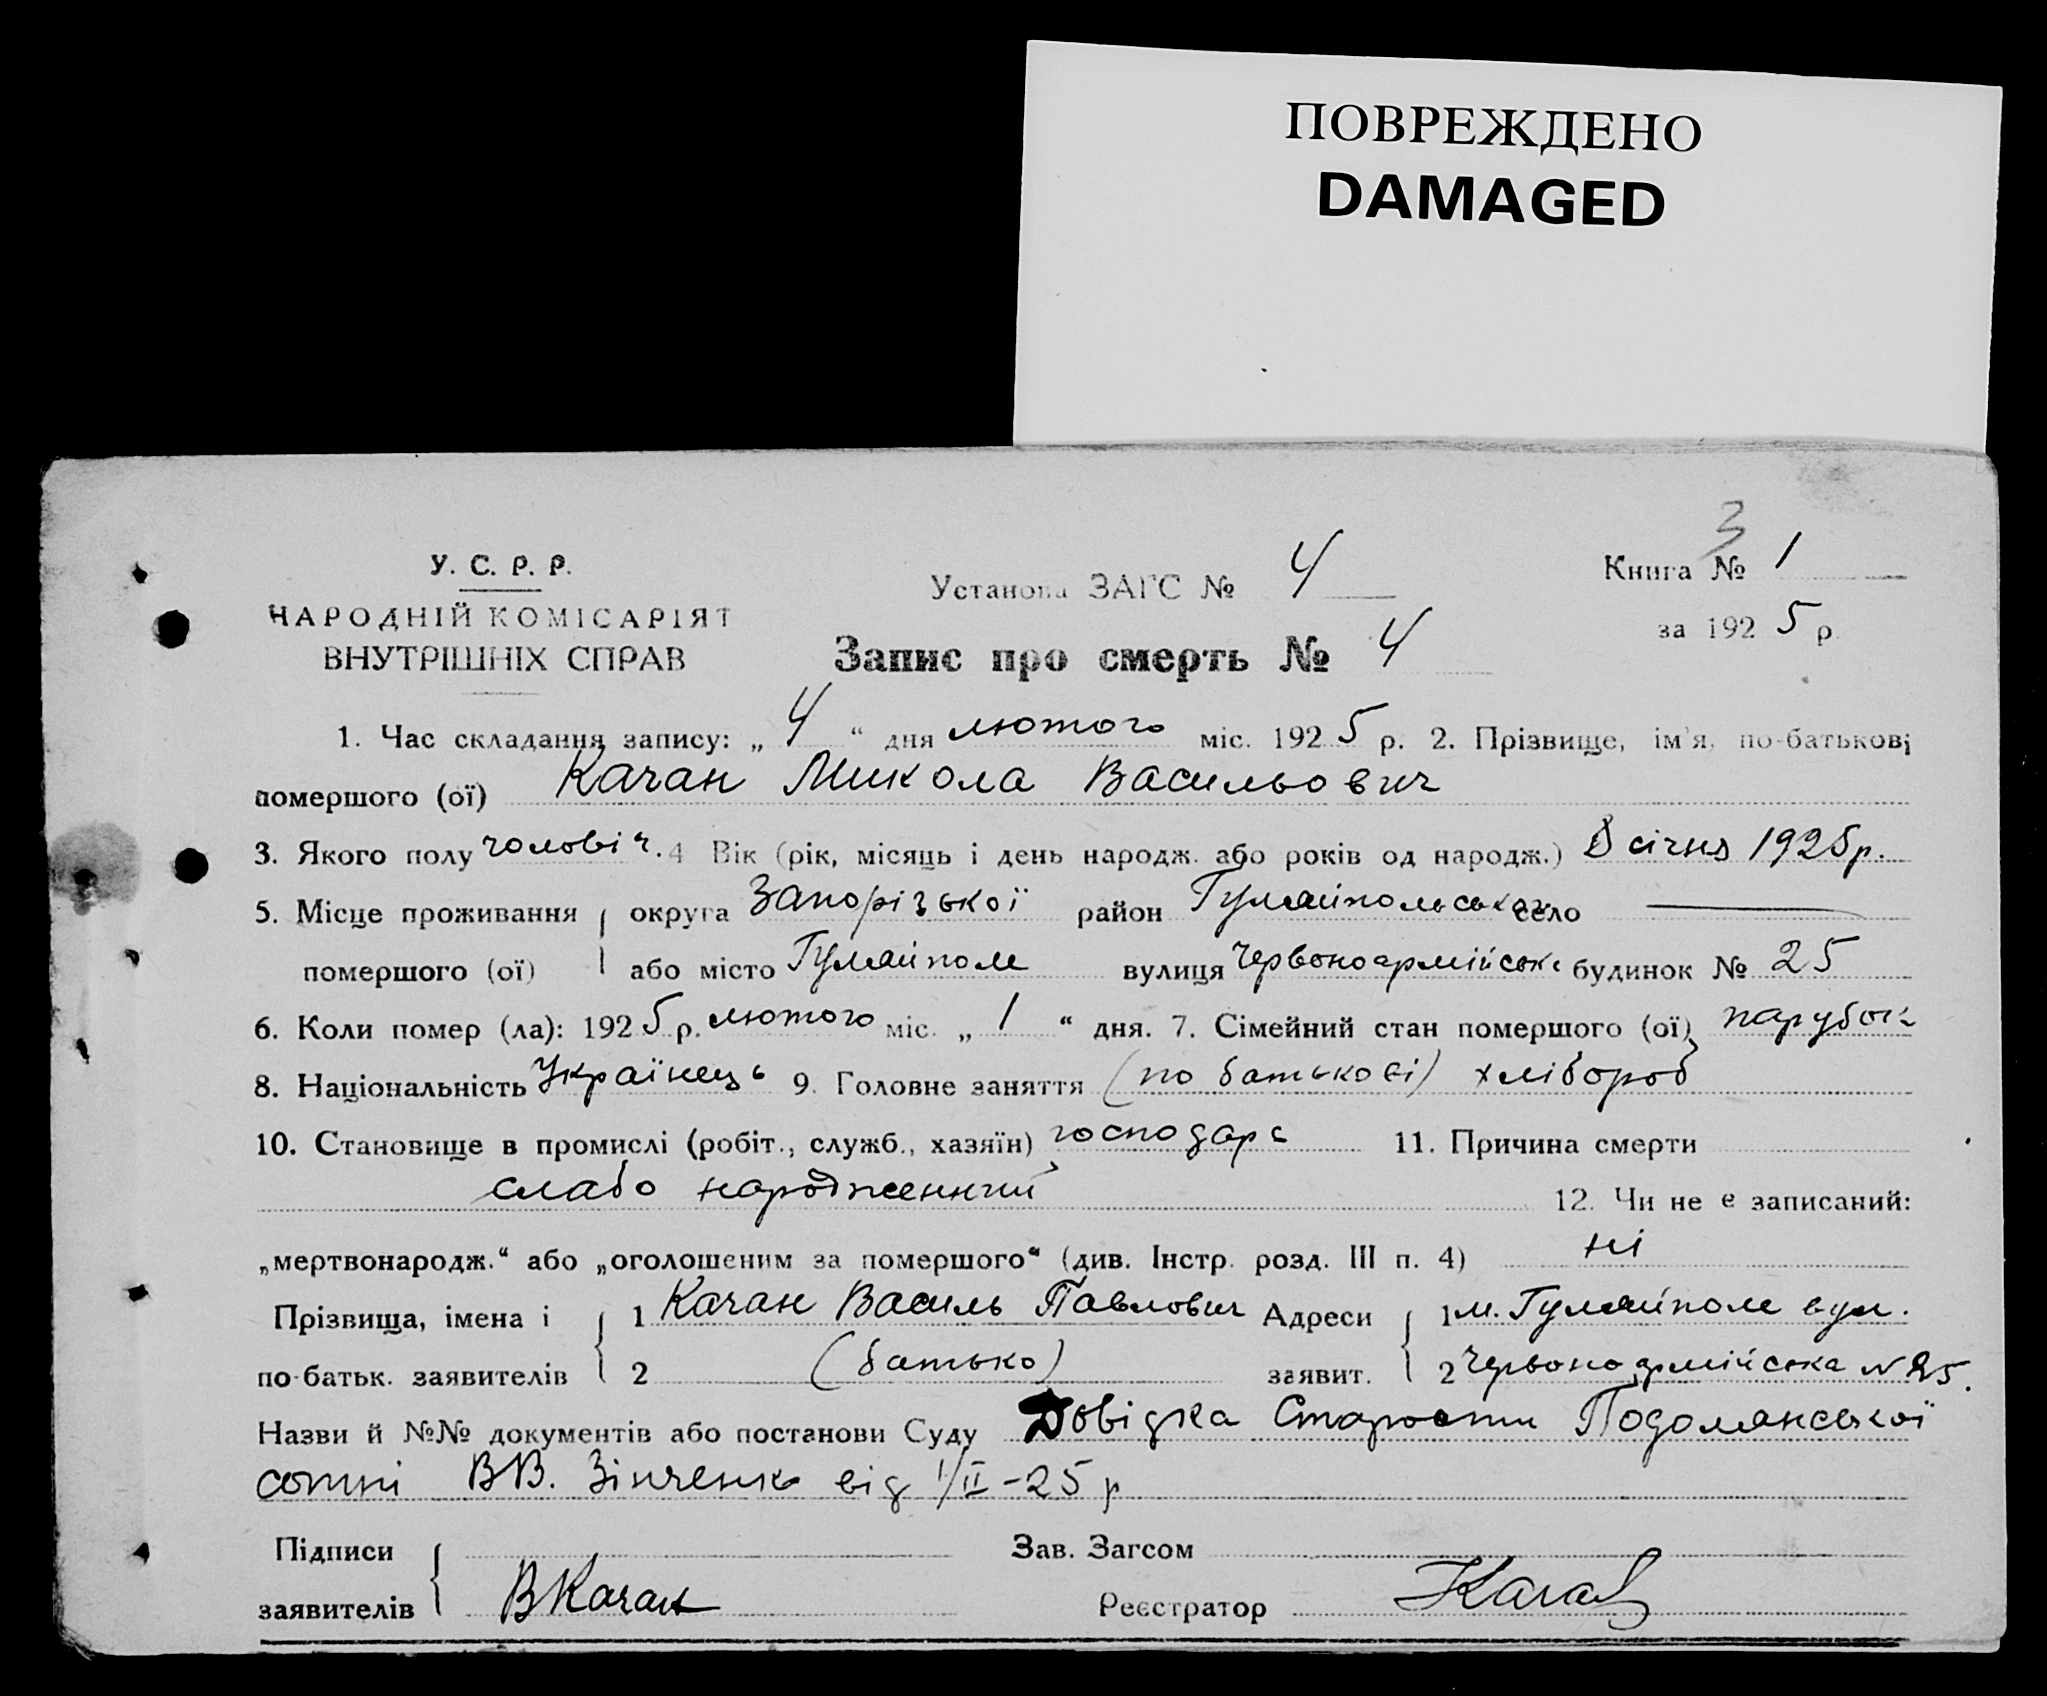 ПОВРЕЖДЕНО
DAMAGED
3
У. С. Р. Р.
НАРОДНІЙ КОМІСАРІЯТ
ВНУТРІШНІХ СПРАВ
Установа ЗАГС № 4
Запис про смерть № 4
Книга № 1
за 1925 р.
1. Час складання запису: „ 4 “ дня лютого міс. 1925 р. 2. Прізвище, ім'я, по-батькові
помершого (ої) Качан Микола Васильович
3. Якого полу чоловіч. 4 Вік (рік, місяць і день народж. або років од народж.) 8 січня 1925р.
5. Місце проживання { округа Запорізької район Гуляйпольськ село —
помершого (ої) або місто Гуляйполе вулиця Червоноармійськ будинок № 25
6. Коли помер (ла): 1925 р. лютого міс. „ 1 “ дня. 7. Сімейний стан помершого (ої) парубок
8. Національність Українець 9. Головне заняття (по батькові) хлібороб
10. Становище в промислі (робіт., служб., хазяїн) господарь 11. Причина смерти
слабо народженний 12. Чи не е записаний:
„мертвонародж.“ або „оголошеним за помершого“ (див. Інстр. розд. III п. 4) ні
Прізвища, імена і { 1 Качан Василь Павлович Адреси { 1 м. Гуляйполе вул.
по-батьк. заявителів 2 (батько) заявит. 2 Червоноармійська N 25.
Назви й №№ документів або постанови Суду Довідка Старости Подолянської
сотні ВВ. Зінченко від 1/II-25 р
Підписи { Зав. Загсом
заявителів ВКачан Реєстратор